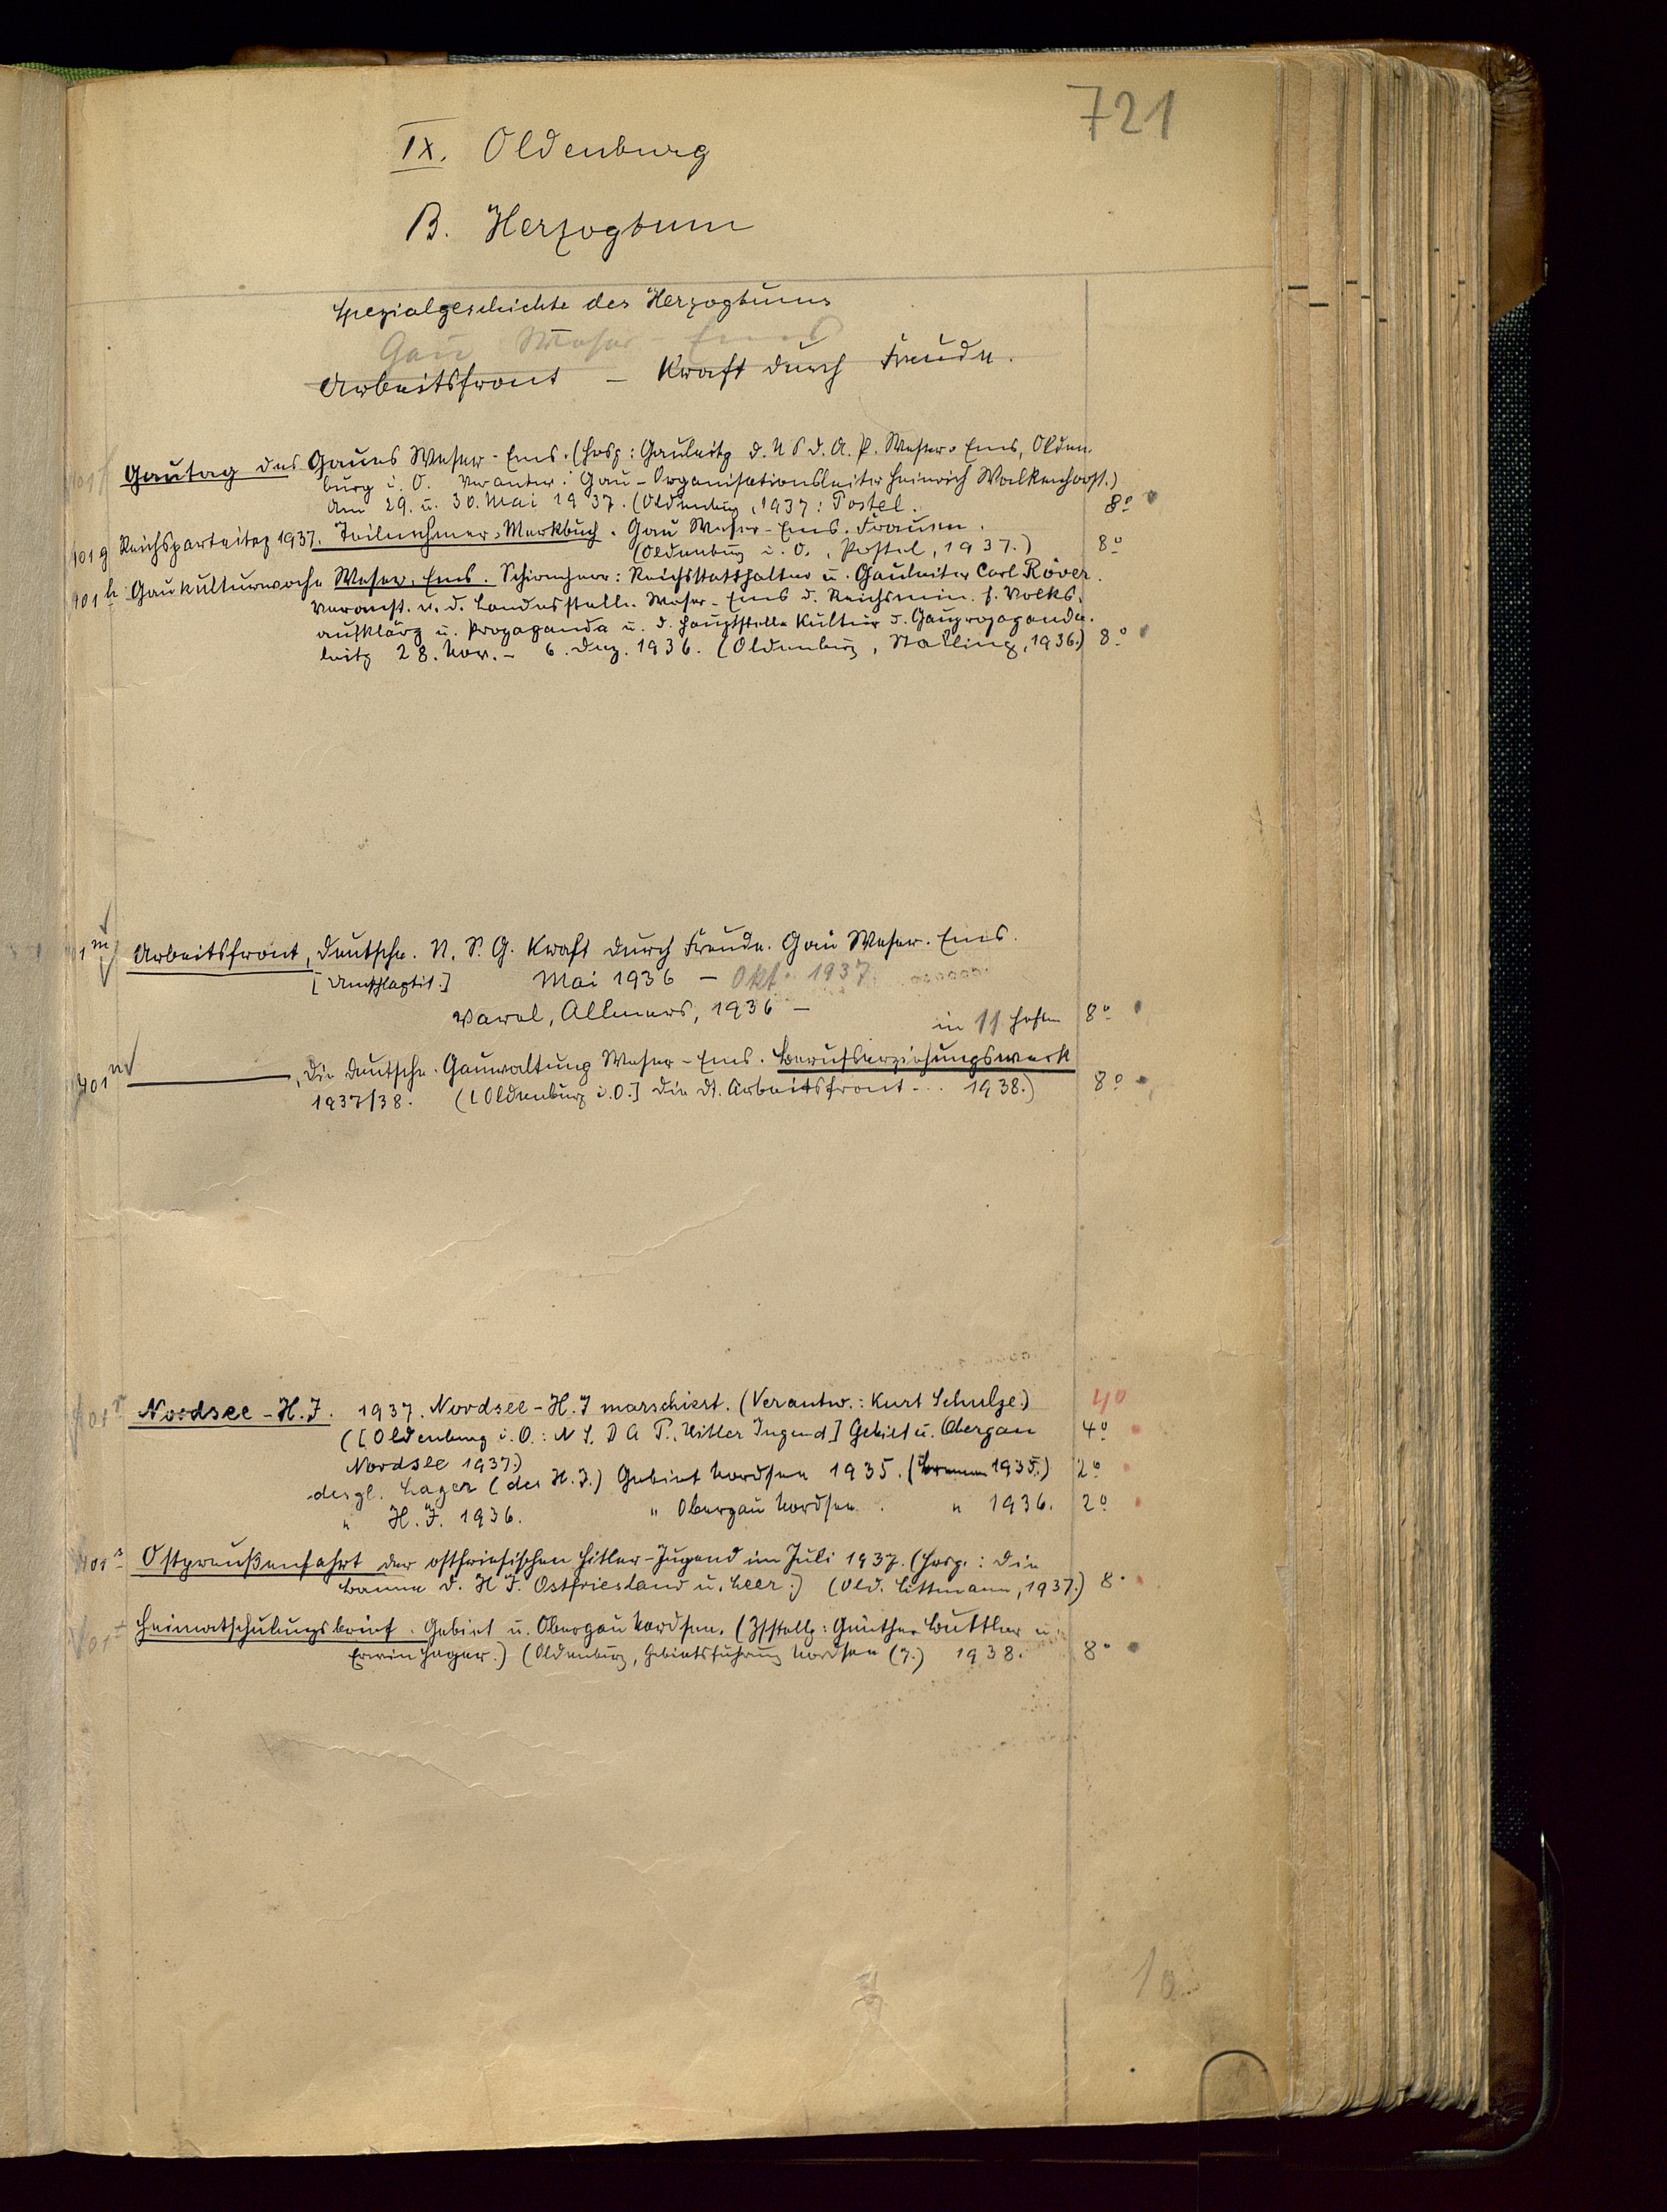 721
IX. Oldenburg
B. Herzogtum
Spezialgeschichte des Herzogtums
Gau Weser-Ems
Arbeitsfront – Kraft durch Freude.
401 f Gautag des Gaues Weser-Ems. (Hrsg: Gauleitg d. N S d. A. P. Weser-Ems, Olden-
burg i. O. Verantw.: Gau-Organisationsleiter Heinrich Walkenhorst.)
Am 29. u. 30. Mai 1937. (Oldenburg, 1937: Postel. 8°
401 g Reichsparteitag 1937. Teilnehmer-Merkbuch. Gau Weser-Ems. Frauen.
(Oldenburg i. O., Postel, 1937.) 8°
401 h Gaukulturwoche Weser-Ems. Schirmherr: Reichsstatthalter u. Gauleiter Carl Röver.
Veranst. v. d. Landesstelle Weser-Ems d. Reichsmin. f. Volks-
aufklärg u. Propaganda u. d. Hauptstelle Kultur d. Gaupropaganda-
leitg 28. Nov. – 6. Dez. 1936. (Oldenburg, Stalling, 1936.) 8°
1 m Arbeitsfront, Deutsche. N. S. G. Kraft durch Freude. Gau Weser-Ems.
[Umschlagtit.] Mai 1936 – Okt. 1937
Varel, Allmers, 1936 –
in 11 Heften 8°
401 n ———, Die Deutsche. Gauwaltung Weser-Ems. Berufserziehungswerk
1937/38. ([Oldenburg i. O.] Die Dt. Arbeitsfront ... 1938.) 8°
401 r Nordsee-H.J. 1937. Nordsee-H.J marschiert. (Verantw.: Kurt Schulze.) 40
([Oldenburg i. O.: N S. D A P., Hitler Jugend] Gebiet u. Obergau 4°
Nordsee 1937.)
desgl. Lager (der H.J.) Gebiet Nordsee 1935. (Bremen 1935.) 2°
" H.J. 1936. " Obergau Nordsee. " 1936. 2°
401 s Ostpreußenfahrt der ostfriesischen Hitler-Jugend im Juli 1937. (Hrsg.: Die
Banne d. H J. Ostfriesland u. Leer.) (Old. Littmann, 1937.) 8°
401 t Heimatschulungsbrief. Gebiet u. Obergau Nordsee. (Zsstellg: Günther Buttler u.
Erwin Hager.) (Oldenburg, Gebietsführung Nordsee (7.) 1938. 8°